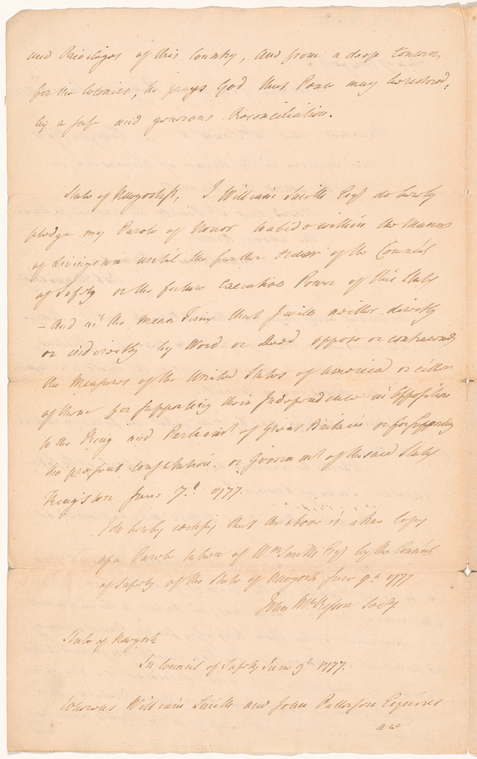 and Priviliges of this Country, and from a deep Concern
for the Colonies, he prays God that Peace may be restored,
by a just and generous Reconciliation.
State of Newyork ss, I William Smith Esqr do hereby
pledge my Parole of Honor to abide within the Manor
of Livingston until the further Order of the Council
of Safety or the future Executive Power of this State
– And in the mean Time that I will neither directly
or indirectly by Word or Deed oppose or contravene
the Measures of the United States of America or either
of them for supporting their Independence in Opposition
to the King and Parliamt of Great Britain or for supporting
the present constitution or Governmt of the said State
Kingston June 7th 1777.
I do hereby certify that the above is a true Copy
of a Parole taken of Wm Smith Esqr by the Council
of Safety of the State of Newyork June 9th 1777
John McKesson Secry
State of Newyork
In Council of Safety June 9th 1777.
Whereas William Smith and John Patterson Esquires
are